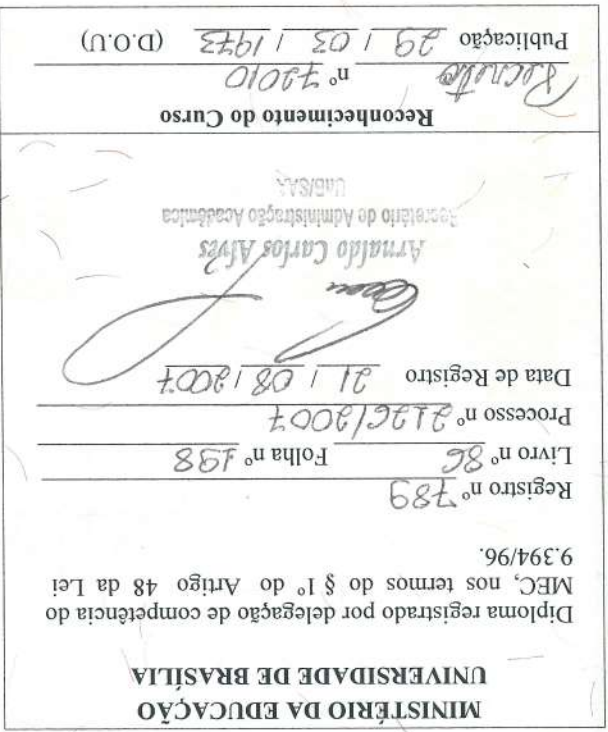 MINISTÉRIO DA EDUCAÇÃO
UNIVERSIDADE DE BRASÍLIA
Diploma registrado por delegação de competência do
MEC, nos termos do § 1º do Artigo 48 da Lei
9.394/96.
Registro nº 789
Livro nº 86 Folha nº 198
Processo nº
Data de Registro 21 / 08 / 2007
Arnaldo Carlos Alves
Secretário de Administração Acadêmica
UnB/SAA
Reconhecimento do Curso
Decreto nº 72010
Publicação 29 / 03 / 1973 (D.O.U)